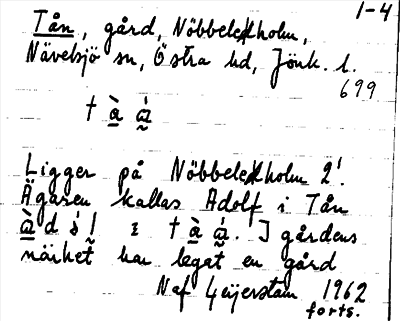 1-4
Tån, gård, Nöbbeleholm,
Nävelsjö sn, Östra hd, Jönk. l.
699
† à̱ á̰
Ligger på Nöbbeleholm 2¹.
Ägaren kallas Adolf i Tån
à̱ d ś l̰ i † à̱ á̰. I gårdens
närhet har legat en gård
Naf Geijerstam 1962
forts.